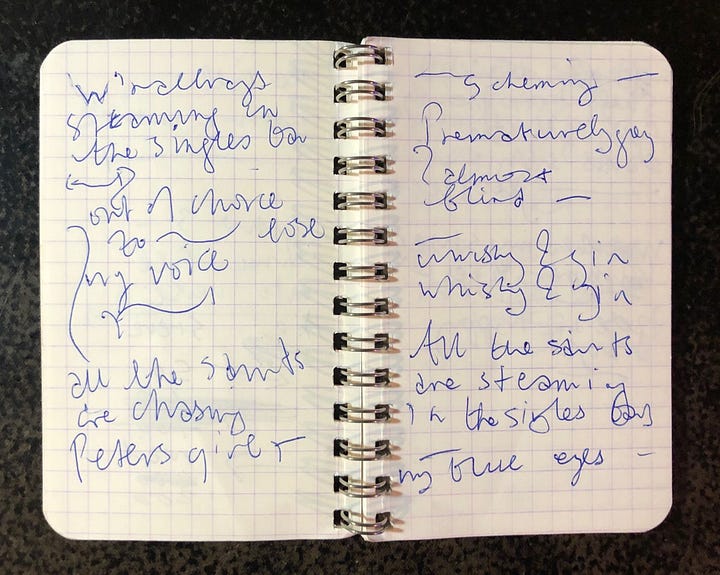 steaming in
the singles bar
out of choice
to lose
my voice
all the saints
are chasing
Peters
— scheming —
Prematurely gay
& almost
blind —
whisky & gin
whisky & gin
All the saints
are steaming
in the sigles bars
my blue eyes —